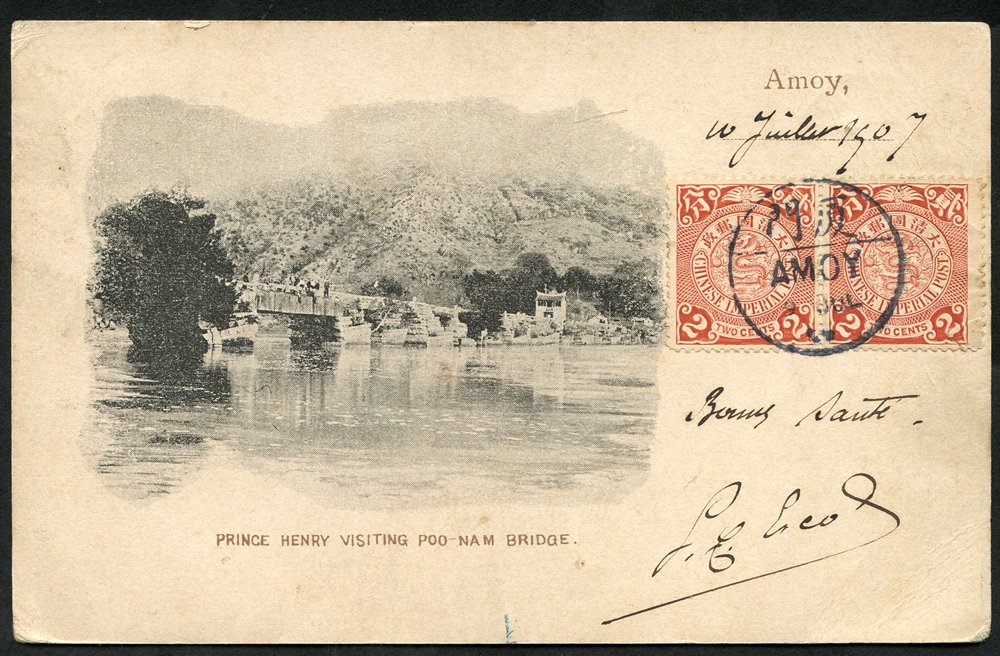 Amoy,
10 Juillet 1907
分 大清國郵政 分
CHINESE IMPERIAL POST
2 TWO CENTS 2
大清國郵政
CHINESE IMPERIAL POST
2 TWO CENTS 2
AMOY
JUL
Bonne Santé.
PRINCE HENRY VISITING POO-NAM BRIDGE.